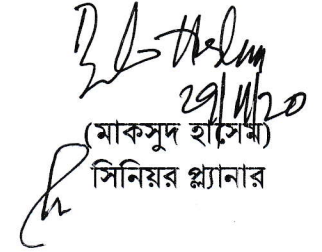 29/11/20
(মাকসুদ হাসেম)
সিনিয়র প্ল্যানার